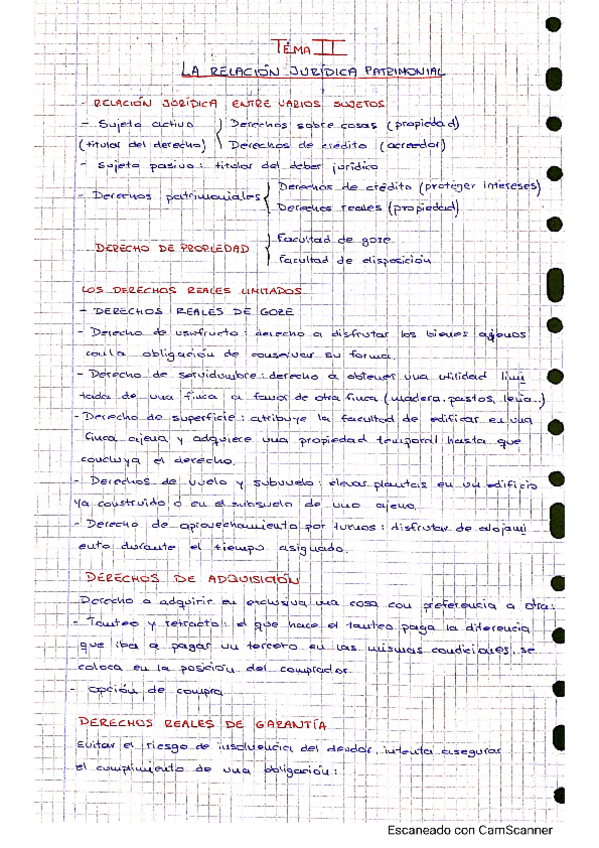 TEMA II
LA RELACIÓN JURÍDICA PATRIMONIAL
- RELACIÓN JURÍDICA ENTRE VARIOS SUJETOS
- Sujeto activo { Derechos sobre cosas (propiedad)
(titular del derecho) { Derechos de crédito (acreedor)
- Sujeto pasivo: titular del deber jurídico
- Derechos patrimoniales { Derechos de crédito (proteger intereses)
Derechos reales (propiedad)
DERECHO DE PROPIEDAD { Facultad de goze
Facultad de disposición
LOS DERECHOS REALES LIMITADOS
- DERECHOS REALES DE GOZE
- Derecho de usufructo: derecho a disfrutar los bienes ajenos
con la obligación de conservar su forma.
- Derecho de servidumbre: derecho a obtener una utilidad limi
tada de una finca a favor de otra finca (madera, pastos, leña..)
- Derecho de superficie: atribuye la facultad de edificar en una
finca ajena y adquiere una propiedad temporal hasta que
concluya el derecho.
- Derechos de vuelo y subsuelo: elevar plantas en un edificio
ya construido o en el subsuelo de uno ajeno.
- Derecho de aprovechamiento por turnos: disfrutar de alojami
ento durante el tiempo asignado.
DERECHOS DE ADQUISICIÓN
Derecho a adquirir en exclusiva una cosa con preferencia a otra:
- Tanteo y retracto: el que hace el tanteo paga la diferencia
que iba a pagar un tercero en las mismas condiciones, se
coloca en la posición del comprador.
- opción de compra
DERECHOS REALES DE GARANTÍA
Evitar el riesgo de insolvencia del deudor, intenta asegurar
el cumplimiento de una obligación:
Escaneado con CamScanner